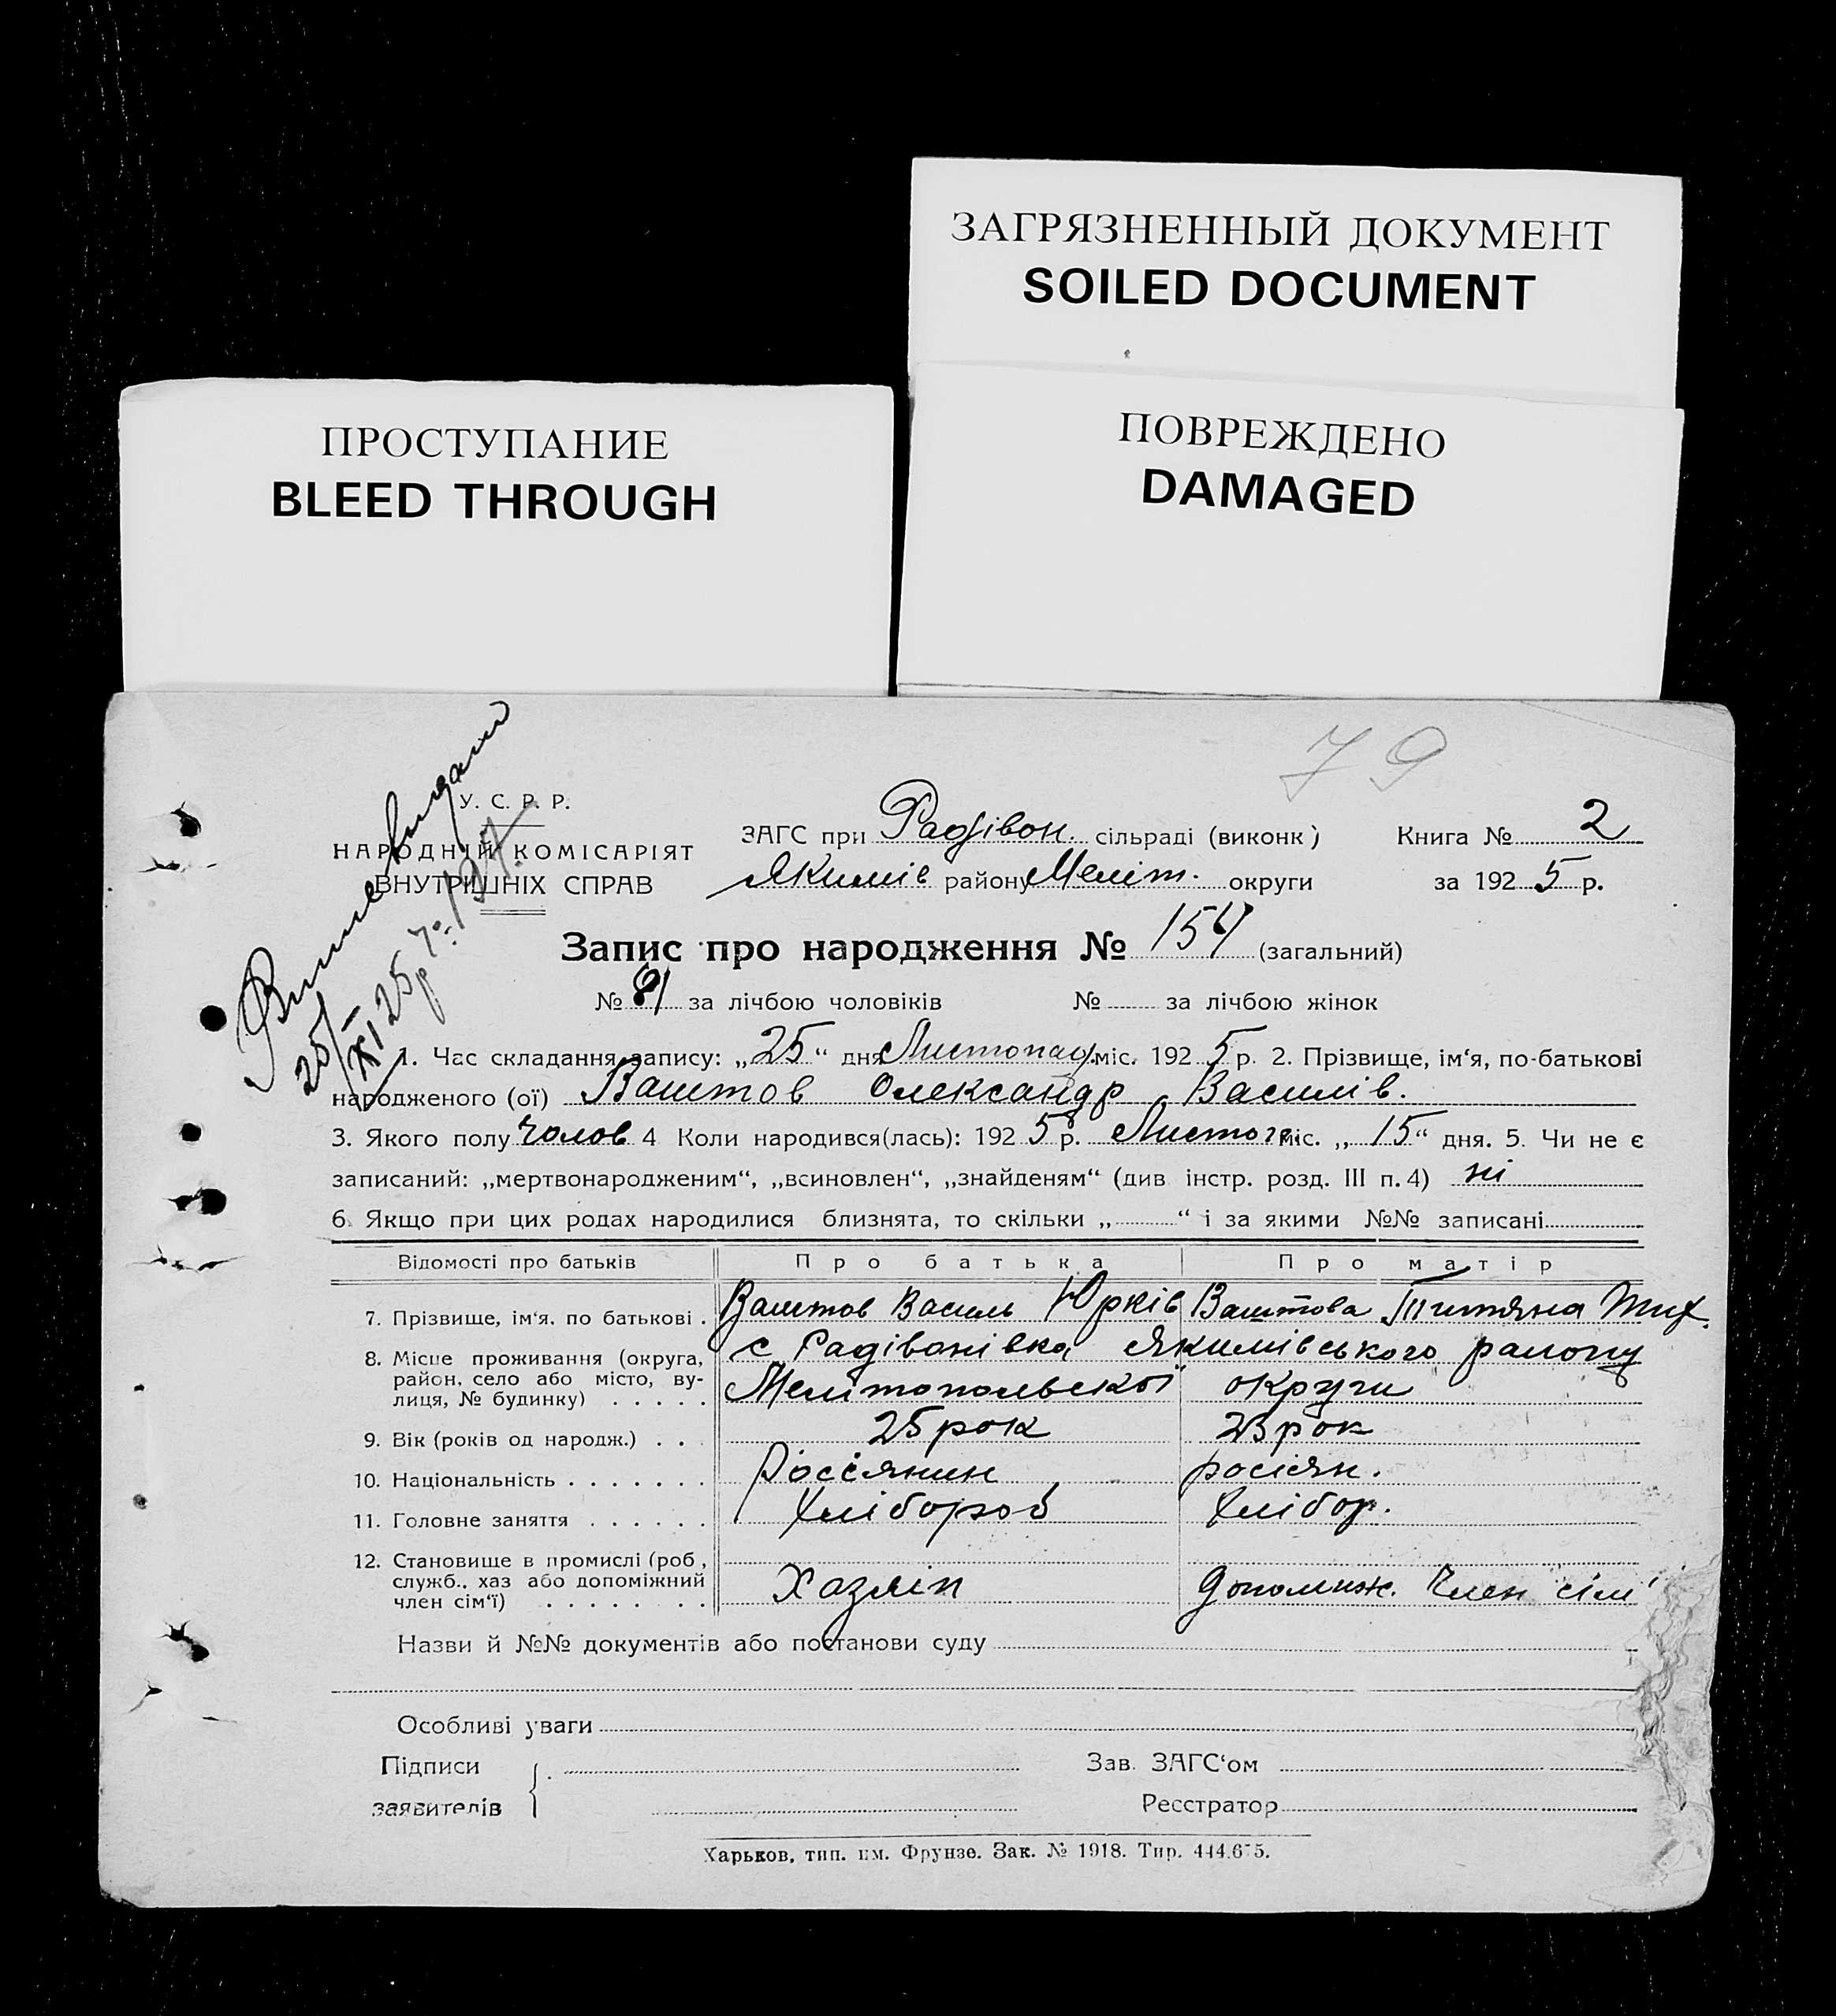 ЗАГРЯЗНЕННЫЙ ДОКУМЕНТ
SOILED DOCUMENT
ПРОСТУПАНИЕ
BLEED THROUGH
ПОВРЕЖДЕНО
DAMAGED
79
У. С. Р. Р.
НАРОДНІЙ КОМІСАРІЯТ
ВНУТРІШНІХ СПРАВ
ЗАГС при Радівон. сільраді (виконк)
Якимів району Меліт. округи
Книга № 2
за 1925 р.
25/XI 25 р
Запис про народження № 154 (загальний)
№ 81 за лічбою чоловіків № за лічбою жінок
1. Час складання запису: „25“ дня Листопад. міс. 1925 р. 2. Прізвище, ім‘я, по-батькові
народженого (ої) Ваштов Олександр Василів.
3. Якого полу чолов 4 Коли народився(лась): 1925 р. Листоп. міс. „15“ дня. 5. Чи не є
записаний: „мертвонародженим“, „всиновлен“, „знайденям“ (див інстр. розд. III п. 4) ні
6. Якщо при цих родах народилися близнята, то скільки „ “ і за якими №№ записані
Відомості про батьків Про батька Про матір
7. Прізвище, ім‘я, по батькові . Ваштов Василь Юрків Ваштова Титяна Тих.
8. Місце проживання (округа, с Радівонівка Якимівського району
район, село або місто, ву-
лиця, № будинку) . . . . . Мелітопольскої округи
9. Вік (років од народж.) . . . 25 рок 23 рок
10. Національність . . . . . . . Россіянин росіян.
11. Головне заняття . . . . . . Хлібороб Хлібор.
12. Становище в промислі (роб,
служб., хаз або допоміжний Хазяін Допоміж. Член сім'
член сім‘ї) . . . . . . .
Назви й №№ документів або постанови суду
Особливі уваги
Підписи
заявителів
Зав. ЗАГС‘ом
Реєстратор
Харьков, тип. им. Фрунзе. Зак. № 1918. Тир.